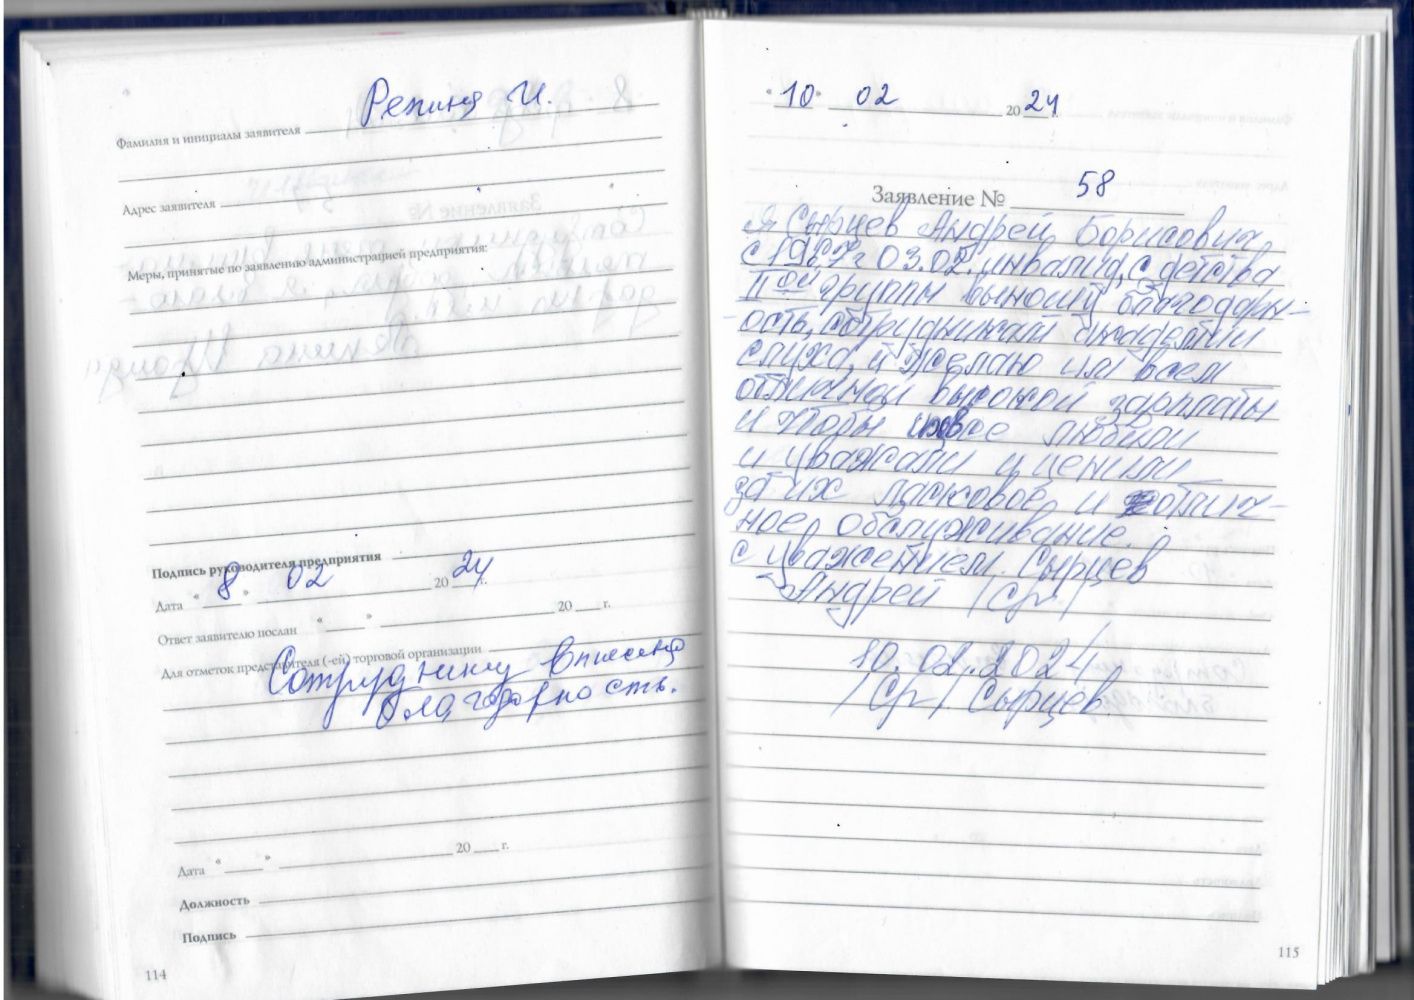 Репина И.
Фамилия и инициалы заявителя
Адрес заявителя
Меры, принятые по заявлению администрацией предприятия:
Подпись руководителя предприятия
Дата « 8 » 02 20 24 г.
Ответ заявителю послан « » 20 г.
Для отметок представителя (-ей) торговой организации
Сотруднику вписана
благодарность.
Дата « » 20 г.
Должность
Подпись
114
"10" 02 20 24
Заявление № 58
Я Сырцев Андрей Борисович
с 1967г 03.02. инвалид, с детства
II ой группы выношу благодарн-
ость, сотрудникам Академии
слуха, и желаю им всем
отличной высокой зарплаты
и чтобы все любили
и уважали и ценили
за их ласковое, и отлич-
ное, обслуживание.
с уважением. Сырцев
Андрей /Ср/
10.02.2024
/Ср/ Сырцев.
115